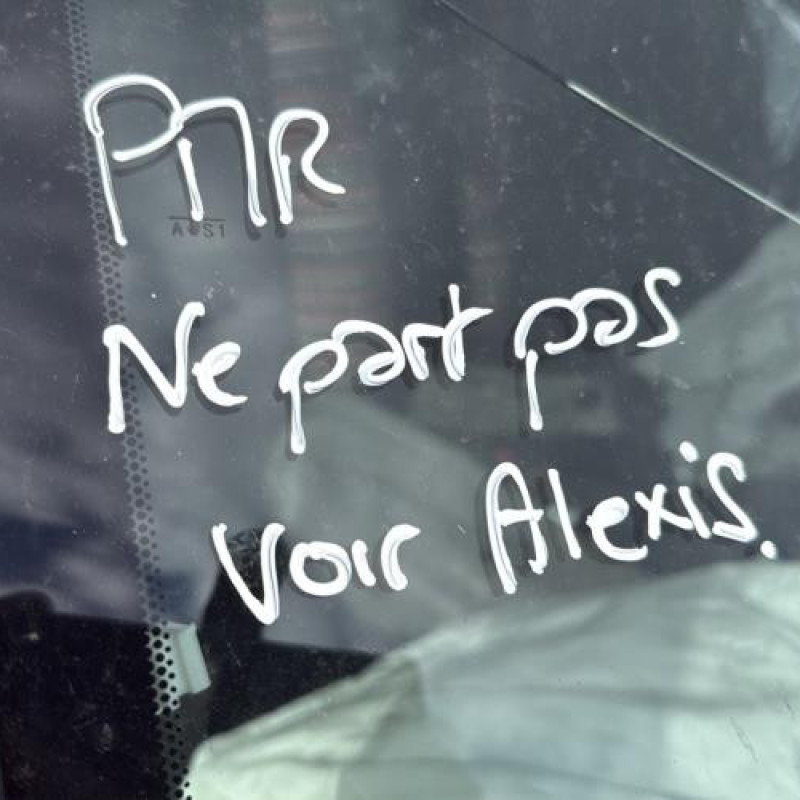 PMR
Ne part pas
voir Alexis.